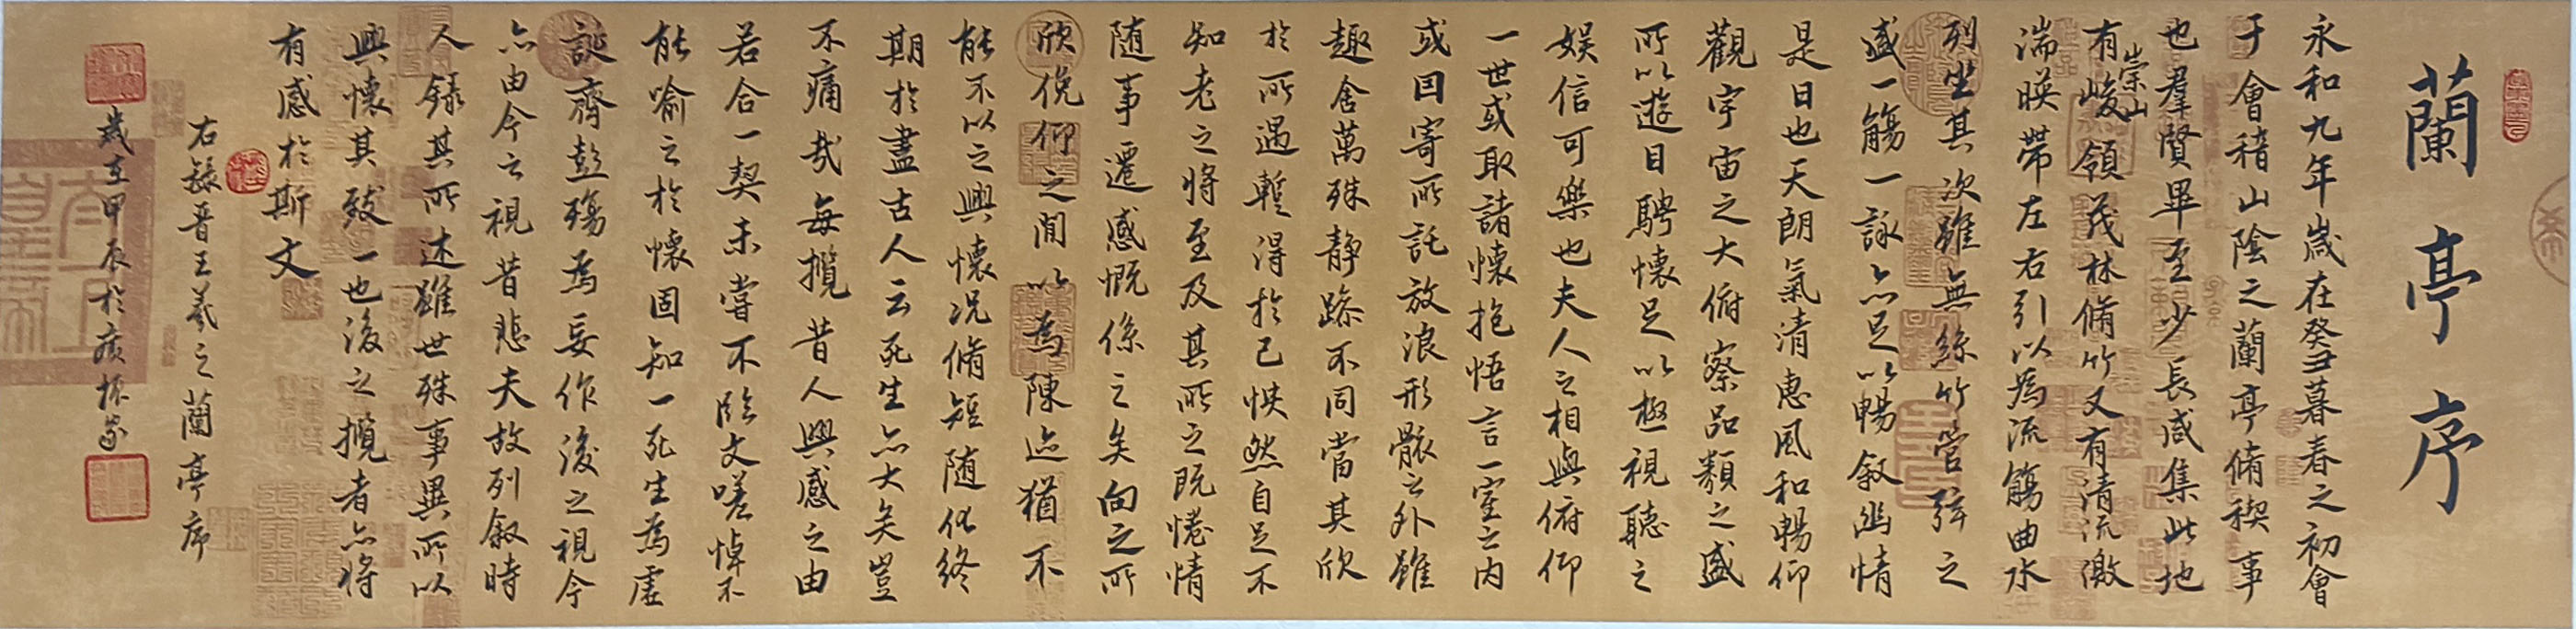 蘭亭序
永和九年歲在癸丑暮春之初會
于會稽山陰之蘭亭脩稧事
也羣賢畢至少長咸集此地
有崇山峻領茂林脩竹又有清流激
湍暎帶左右引以為流觴曲水
列坐其次雖無絲竹管弦之
盛一觴一詠亦足以暢敘幽情
是日也天朗氣清惠風和暢仰
觀宇宙之大俯察品類之盛
所以遊目騁懷足以極視聽之
娛信可樂也夫人之相與俯仰
一世或取諸懷抱悟言一室之內
或因寄所託放浪形骸之外雖
趣舍萬殊靜躁不同當其欣
於所遇蹔得於己怏然自足不
知老之將至及其所之既惓情
隨事遷感慨係之矣向之所
欣俛仰之閒以為陳迹猶不
能不以之興懷況脩短隨化終
期於盡古人云死生亦大矣豈
不痛哉每攬昔人興感之由
若合一契未嘗不臨文嗟悼不
能喻之於懷固知一死生為虛
誕齊彭殤為妄作後之視今
亦由今之視昔悲夫故列敘時
人錄其所述雖世殊事異所以
興懷其致一也後之攬者亦將
有感於斯文
右錄晉王羲之蘭亭序
歲在甲辰於